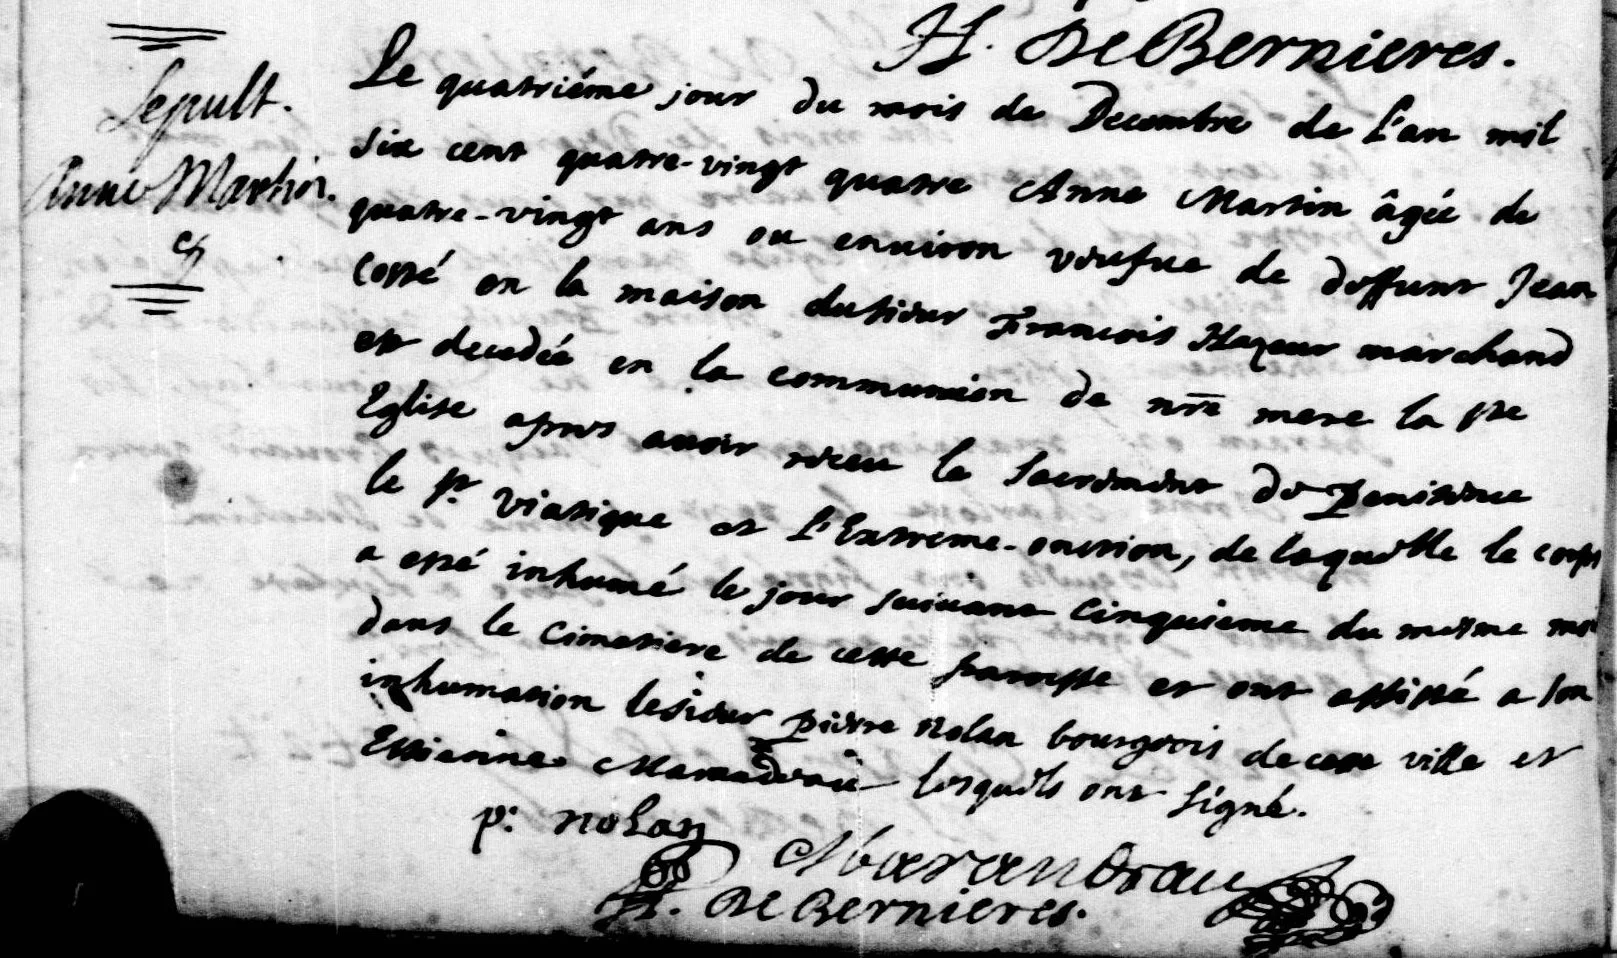 H. De Bernieres.
Sepult.
Anne Martin.
Le quatriéme jour du mois de Decembre de L'an mil
six cent quatre-vingt quatre Anne Martin âgée de
quatre-vingt ans ou enuiron veufue de deffunt Jean
Costé en la maison du sieur Francois Hazeur marchand
est decedée en la communion de nre mere la ste
Eglise apres auoir receu le sacrement de Penitence
le st. Viatique et L'Extreme-onction, de laquelle le corps
a esté inhumé le jour suiuant cinquieme du mesme mois
dans le cimetiere de cette paroisse et ont assisté a son
inhumation le sieur pierre Nolan bourgeois de cette ville et
Estienne Marandeau lesquels ont signé.
p: nolan
Marandeau
H. De Bernieres.